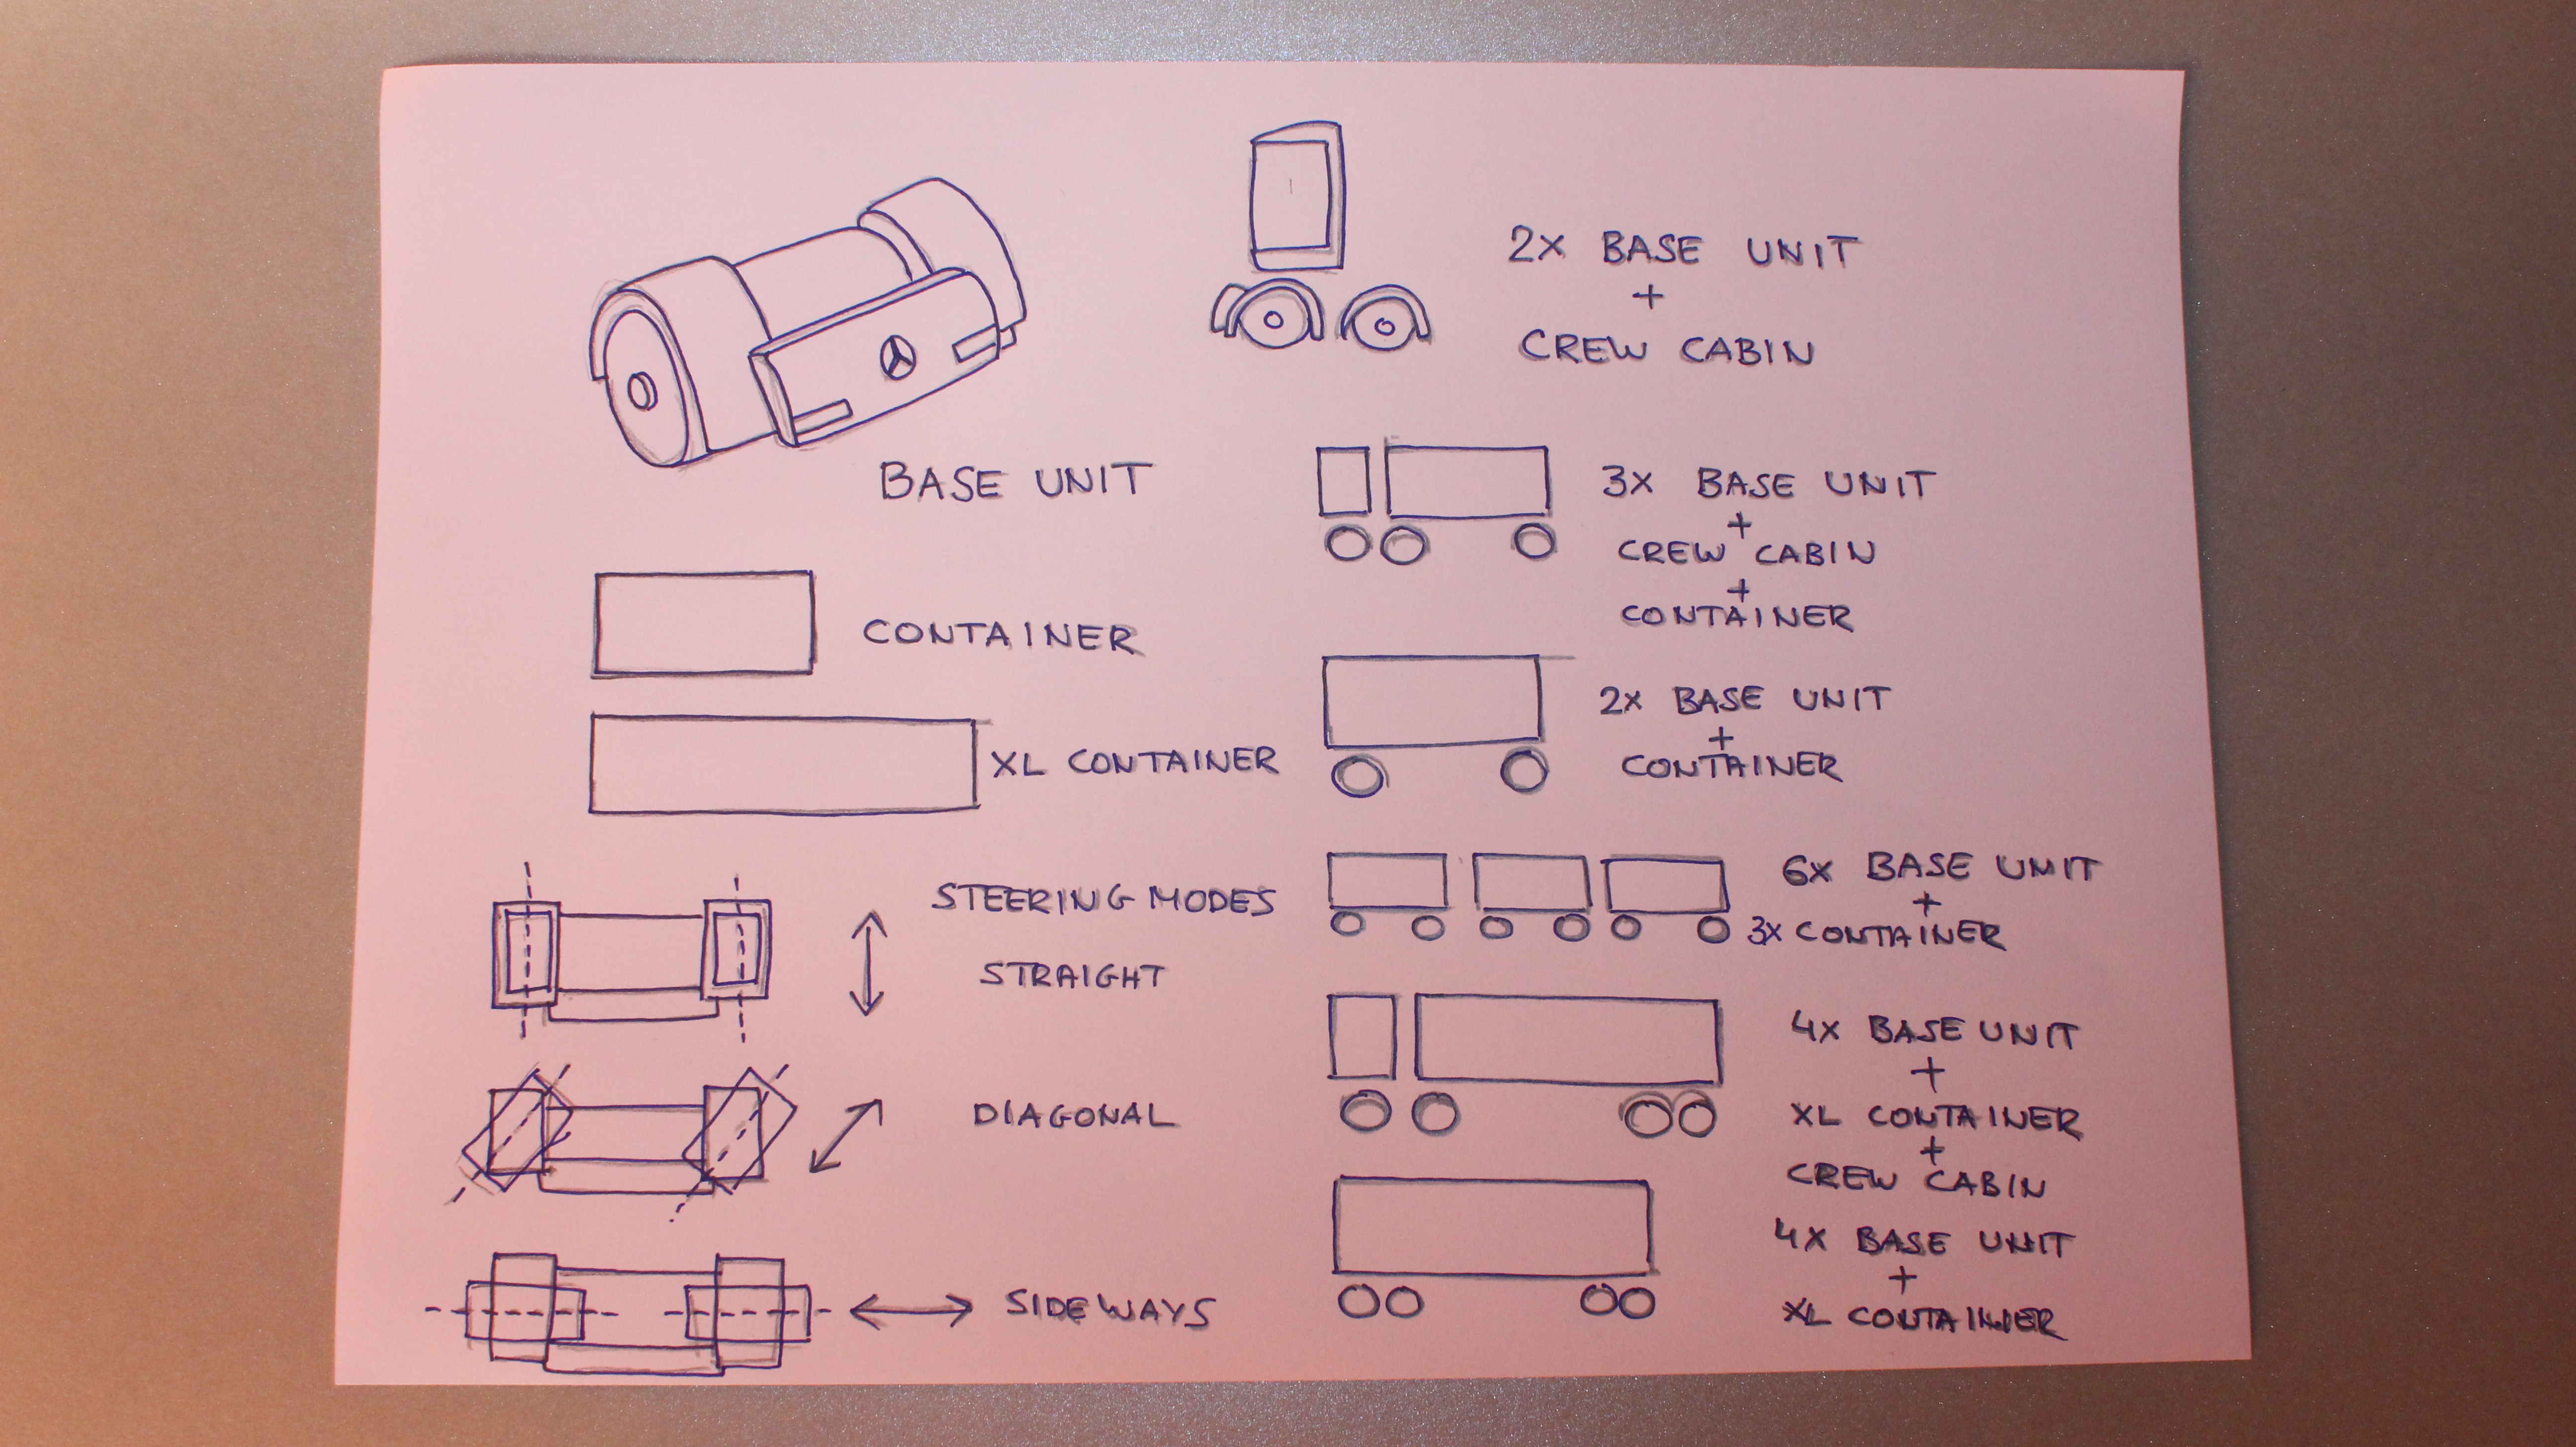 BASE UNIT
CONTAINER
XL CONTAINER
STEERING MODES
STRAIGHT
DIAGONAL
SIDEWAYS
2X BASE UNIT
+
CREW CABIN
3X BASE UNIT
+
CREW CABIN
+
CONTAINER
2X BASE UNIT
+
CONTAINER
6X BASE UNIT
+
3X CONTAINER
4X BASE UNIT
+
XL CONTAINER
+
CREW CABIN
4X BASE UNIT
+
XL CONTAINER